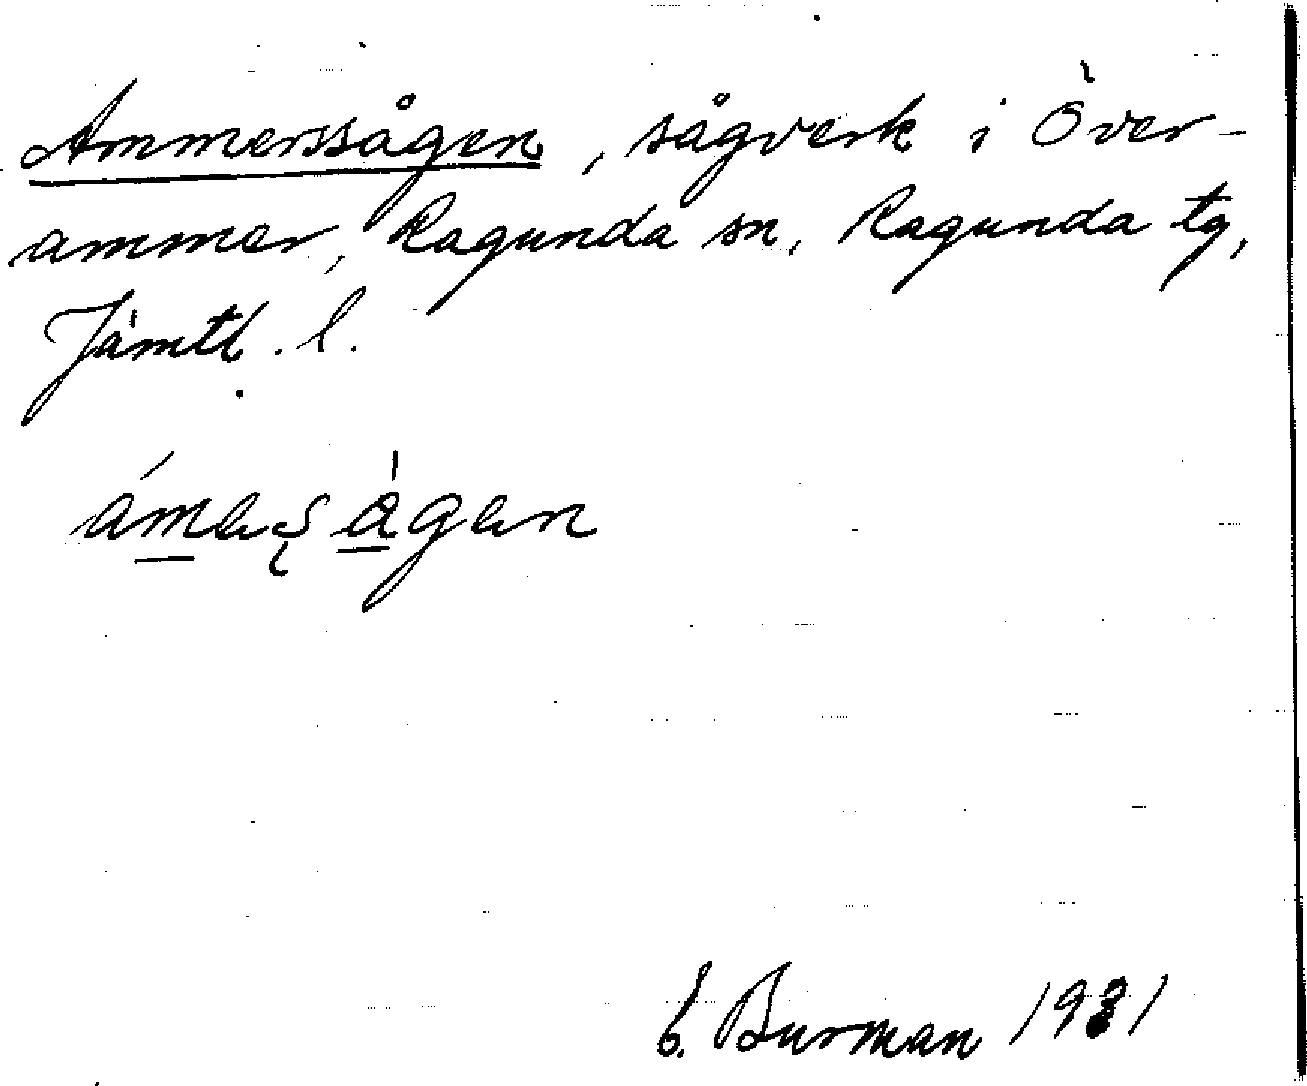 Ammerssågen, sågverk i Över-
ammer, Ragunda sn, Ragunda tg,
Jämtl. l.
E. Burman